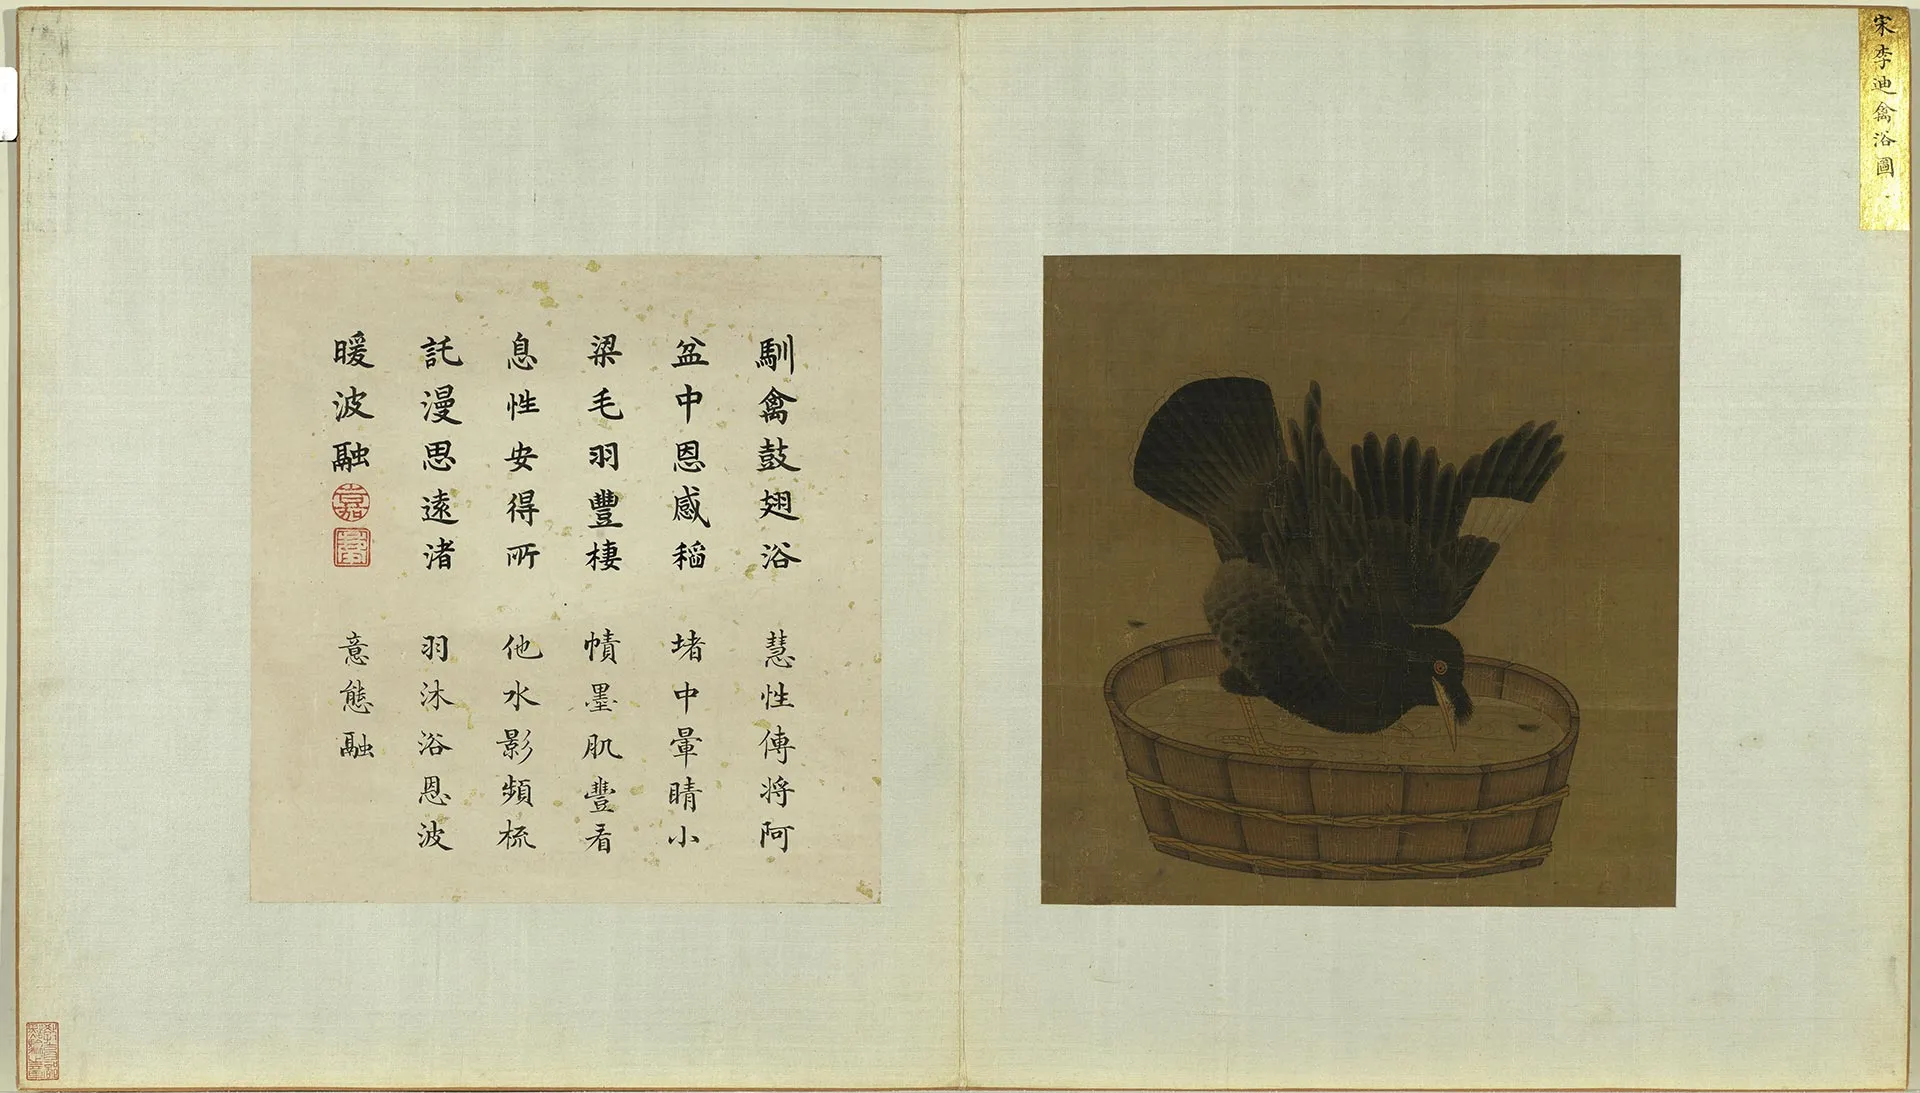 宋李迪禽浴圖
馴禽鼓翅浴
盆中恩感稻
粱毛羽豐棲
息性安得所
託漫思遠渚
暖波融
嘉
慶
慧性傳將阿
堵中暈睛小
幘墨肌豐看
他水影頻梳
羽沐浴恩波
意態融
教育部點驗之章